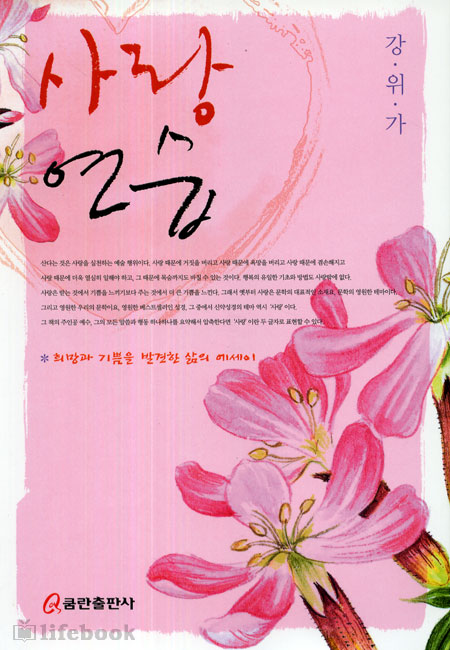 사랑
연습
강·위·가
산다는 것은 사랑을 실천하는 예술 행위이다. 사랑 때문에 거짓을 버리고 사랑 때문에 욕망을 버리고 사랑 때문에 겸손해지고
사랑 때문에 더욱 열심히 일해야 하고, 그 때문에 목숨까지도 바칠 수 있는 것이다. 행복의 유일한 기초와 방법도 사랑밖에 없다.
사랑은 받는 것에서 기쁨을 느끼기보다 주는 것에서 더 큰 기쁨을 느낀다. 그래서 옛부터 사랑은 문학의 대표적인 소재요, 문학의 영원한 테마이다.
그리고 영원한 우리의 문학이요, 영원한 베스트셀러인 성경, 그 중에서 신약성경의 테마 역시 '사랑'이다.
그 책의 주인공 예수, 그의 모든 말씀과 행동 하나하나를 요약해서 압축한다면 '사랑'이란 두 글자로 표현할 수 있다.
* 희망과 기쁨을 발견한 삶의 에세이
쿰란출판사
lifebook